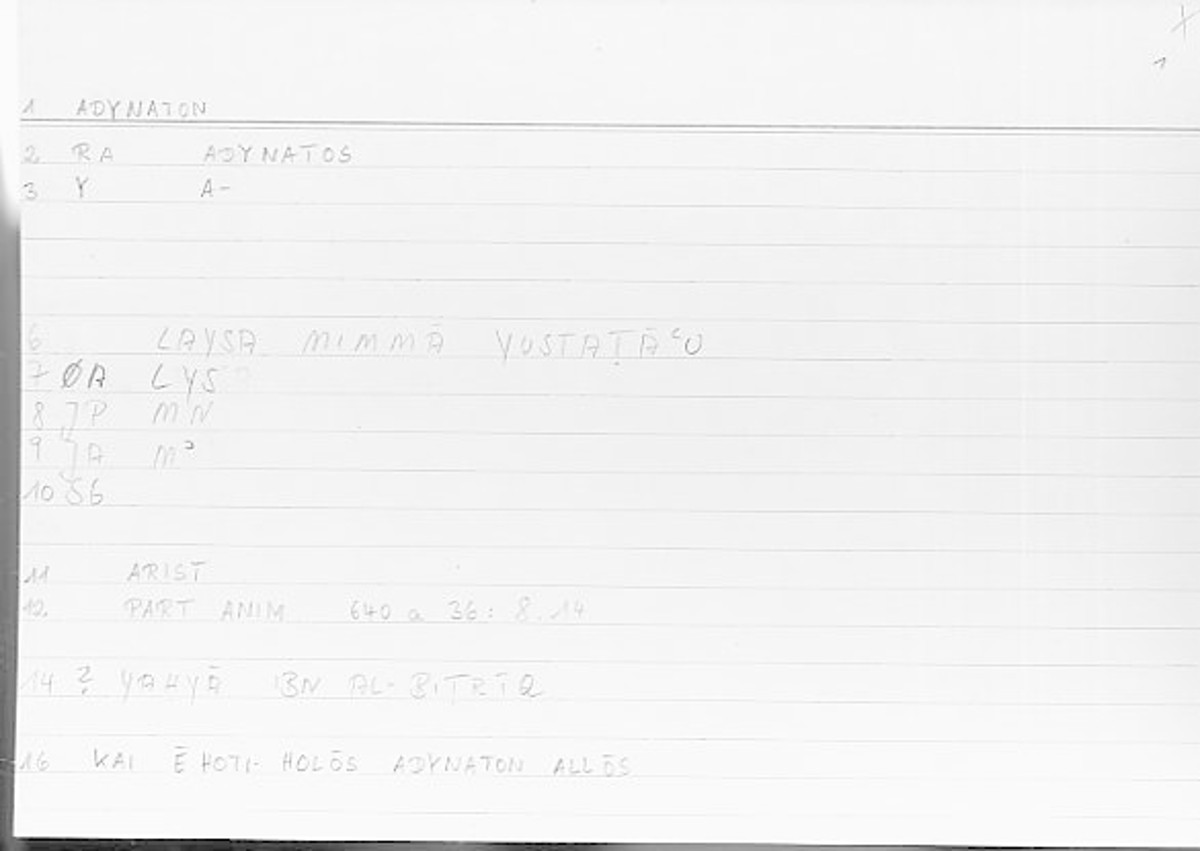 1
1 ADYNATON
2 RA ADYNATOS
3 Y A-
6 LAYSA MIMMĀ YUSTAṬĀʿU
7 ØA LYS
8 ] P MN
9 ] A Mʾ
10 SG
11 ARIST
12 PART ANIM 640 a 36: 8.14
14 ? YAḤYĀ IBN AL-BIṬRĪQ
16 KAI Ē HOTI- HOLŌS ADYNATON ALLŌS